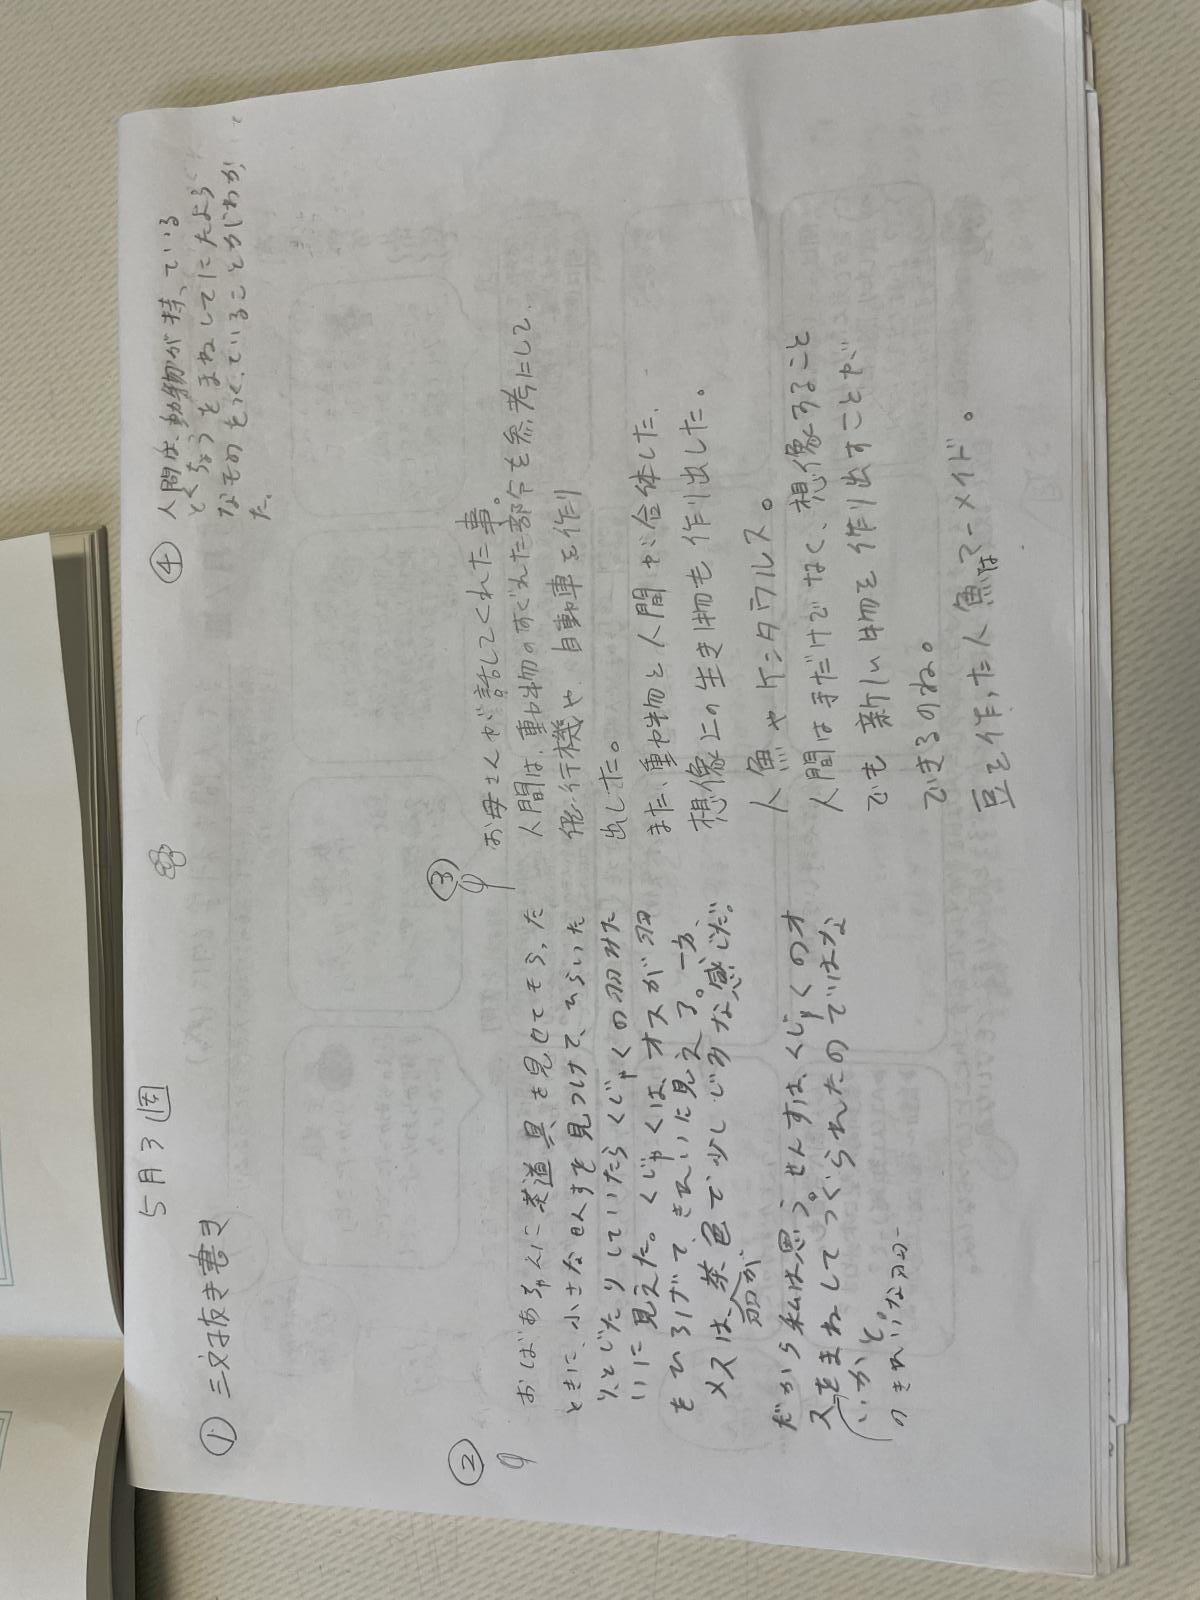 5月3週
① 三文抜き書き
②
おばあちゃんに茶道具を見せてもらった
ときに、小さなせんすを見つけて、ひらいた
りとじたりしていたらくじゃくの羽みた
いに見えた。くじゃくは、オスが羽
をひろげて、きれいに見える。一方、
メスは、茶色で少しじみな感じだ。
羽が
だから私は思う。せんすは、くじゃくのオ
スをまねしてつくられたのではな
いかと。
のきれいな羽
③
お母さんが話してくれた事。
人間は、動物のすぐれた部分を参考にして、
飛行機や、自動車を作り
出した。
また、動物と人間が合体した、
想像上の生き物も作り出した。
人魚やケンタウルス。
人間はまだけでなく、想像すること
でも新しい物を作り出すことが
できるのね。
豆を作った人魚はマーメイド。
④
人間は、動物が持っている
とくちょうをまねしてにたよう
なものをつくっていることがわかっ
た。